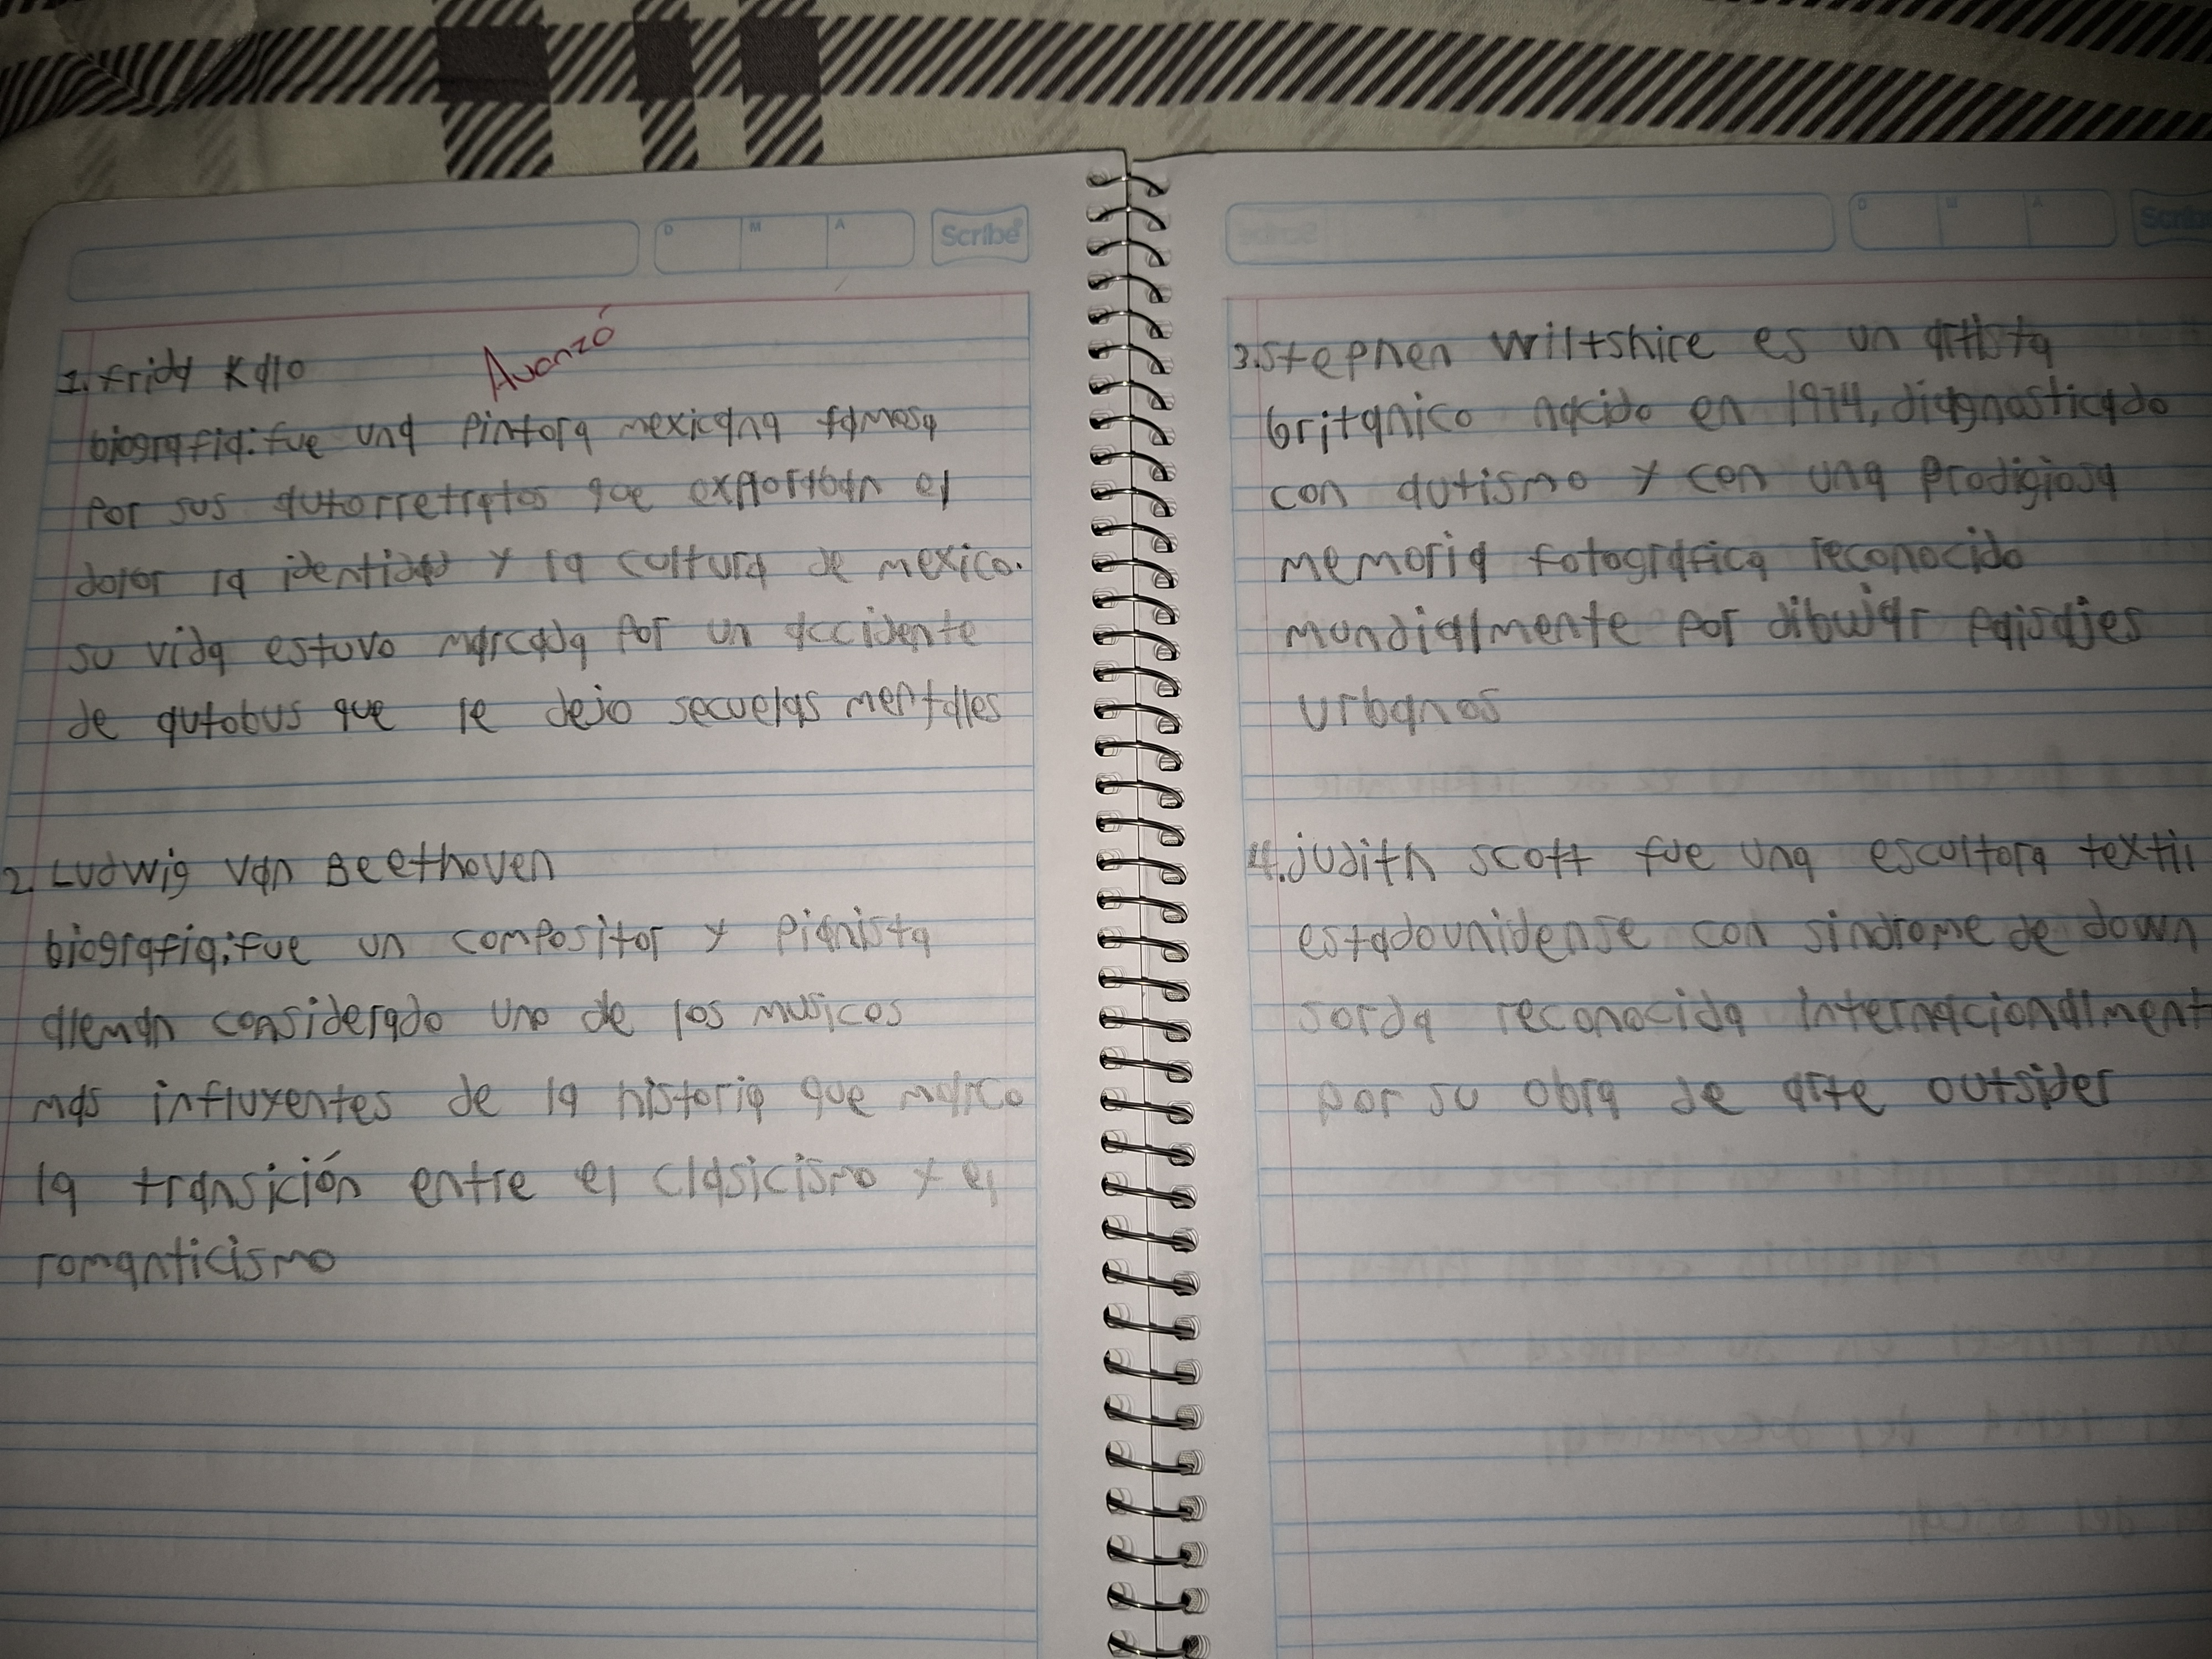 D M A Scribe
Avanzó
1. frida Kalo
biografia: fue una pintora mexicana famosa
por sus autorretratos que explorban el
dolor la identidad y la cultura de mexico.
su vida estuvo marcada por un accidente
de autobus que le dejo secuelas mentales
2. Ludwig van Beethoven
biografia: fue un compositor y pianista
aleman considerado uno de los musicos
mas influyentes de la historia que marco
la transición entre el clasicismo y el
romanticismo
D M A Scribe
3. Stephen Wiltshire es un artista
britanico nacido en 1974, diagnosticado
con autismo y con una prodigiosa
memoria fotografica reconocido
mundialmente por dibujar paisajes
urbanos
4. judith scott fue una escultora textil
estadounidense con sindrome de down
sorda reconocida internacionalment
por su obra de arte outsider